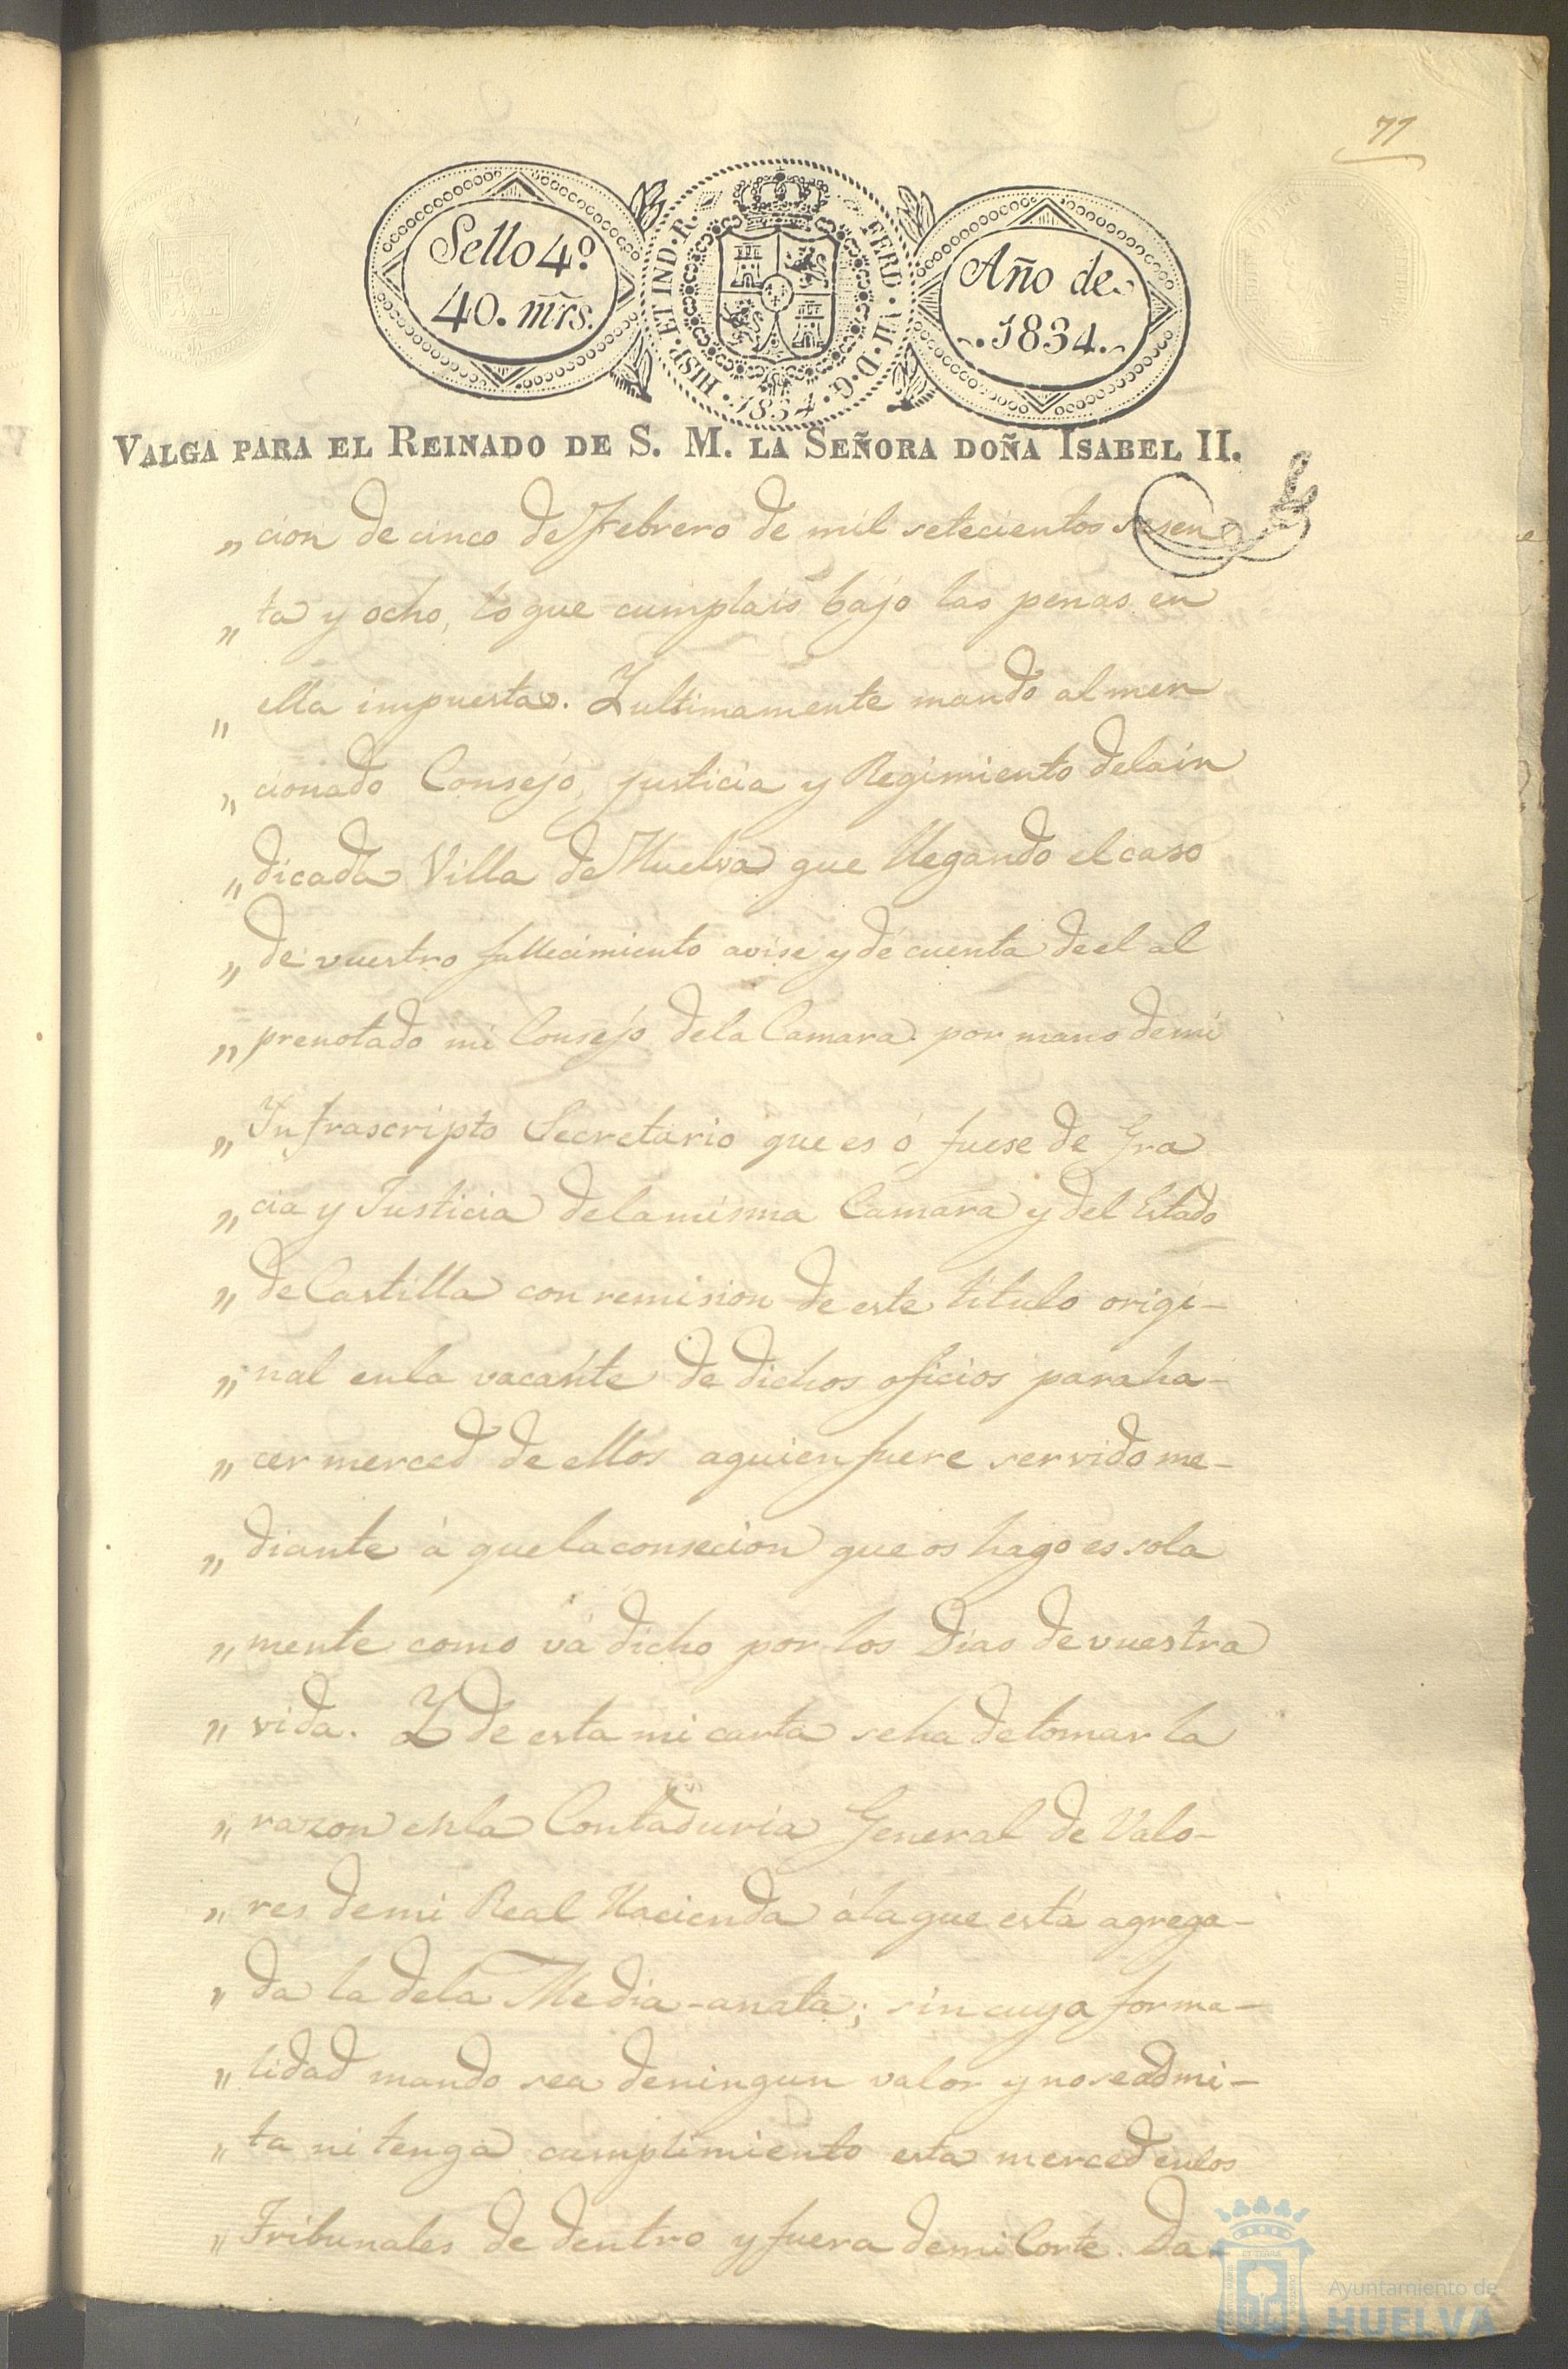 77
Sello 4º
40. mrs.
HISP. ET IND. R.
FERD. VII. D. G.
1834
Año de
1834.
VALGA PARA EL REINADO DE S. M. LA SEÑORA DOÑA ISABEL II.
„ cion de cinco de Febrero de mil setecientos sesen
„ ta y ocho, lo que cumplais bajo las penas en
„ ella impuestas. Y ultimamente mando al men
„ cionado Consejo, justicia y Regimiento dela in
„ dicada Villa de Huelva que llegando el caso
„ de vuestro fallecimiento avise y dé cuenta de el al
„ prenotado mi Consejo dela Camara por mano de mi
„ Infrascripto Secretario que es ó fuese de Gra
„ cia y Justicia dela misma Camara y del Estado
„ de Castilla con remision de este titulo origi-
„ nal en la vacante de dichos oficios para ha-
„ cer merced de ellos a quien fuere servido me-
„ diante á que la consecion que os hago es sola
„ mente como vá dicho por los Dias de vuestra
„ vida. Y de esta mi carta se ha de tomar la
„ razon en la Contaduria General de Valo-
„ res de mi Real Hacienda á la que está agrega-
„ da la dela Media-anata; sin cuya forma-
„ lidad mando sea de ningun valor y no se admi-
„ ta ni tenga cumplimiento esta merced en los
„ Tribunales de dentro y fuera de mi Corte. Da-
Ayuntamiento de
HUELVA